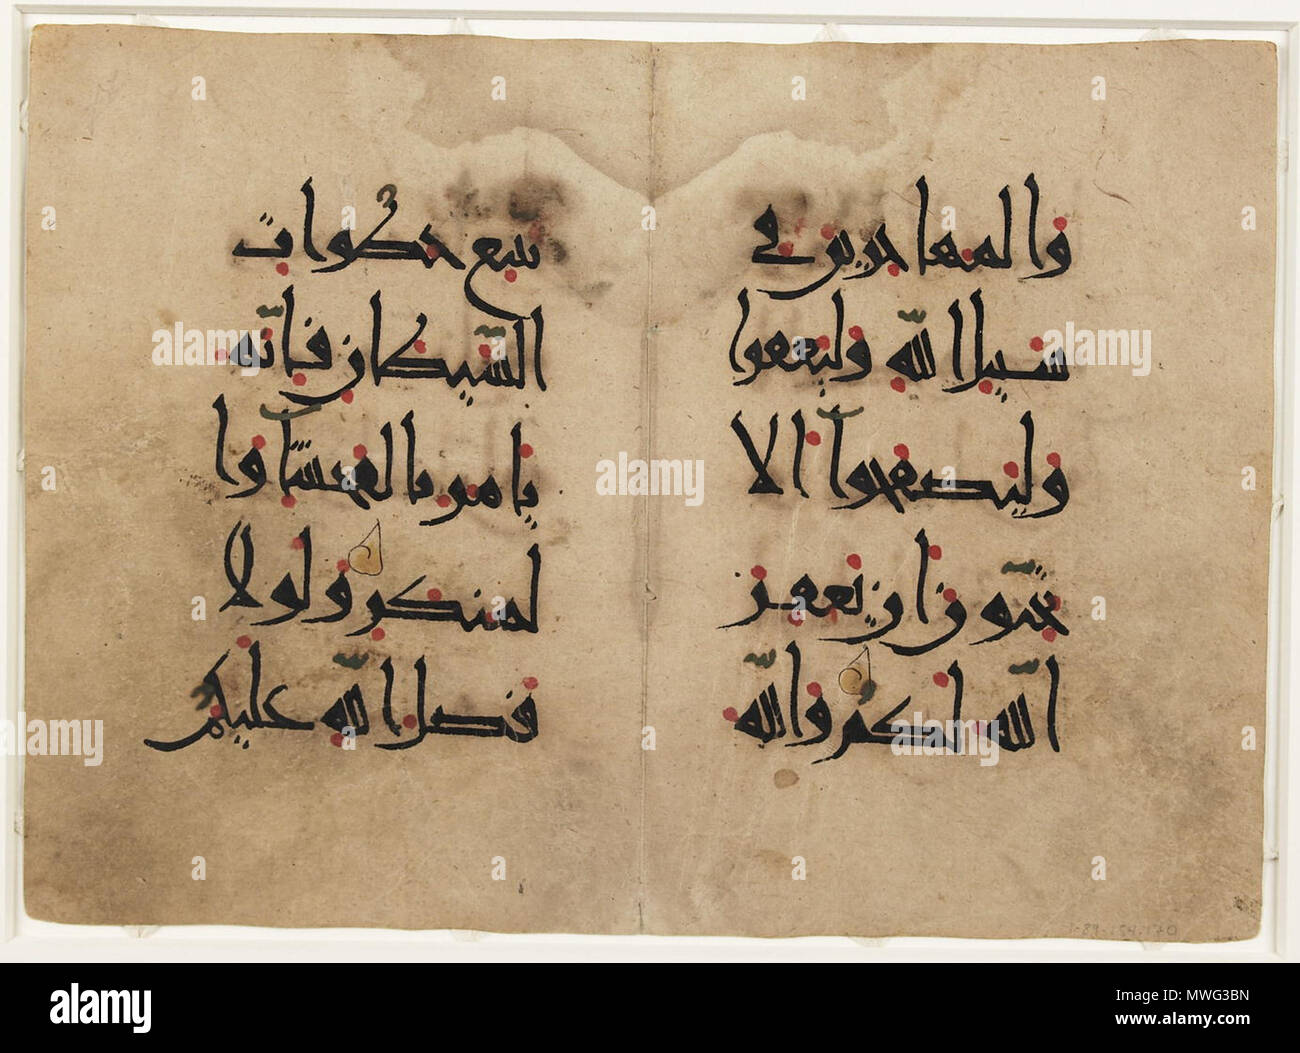 والمهاجرين في
سبيل الله وليعفوا
وليصفحوا الا
تحبون ان يغفر
الله لكم والله
يتبع خطوات
الشيطان فانه
يامر بالفحشا وا
لمنكر ولولا
فضل الله عليكم
alamy
Image ID: MWG3BN
www.alamy.com